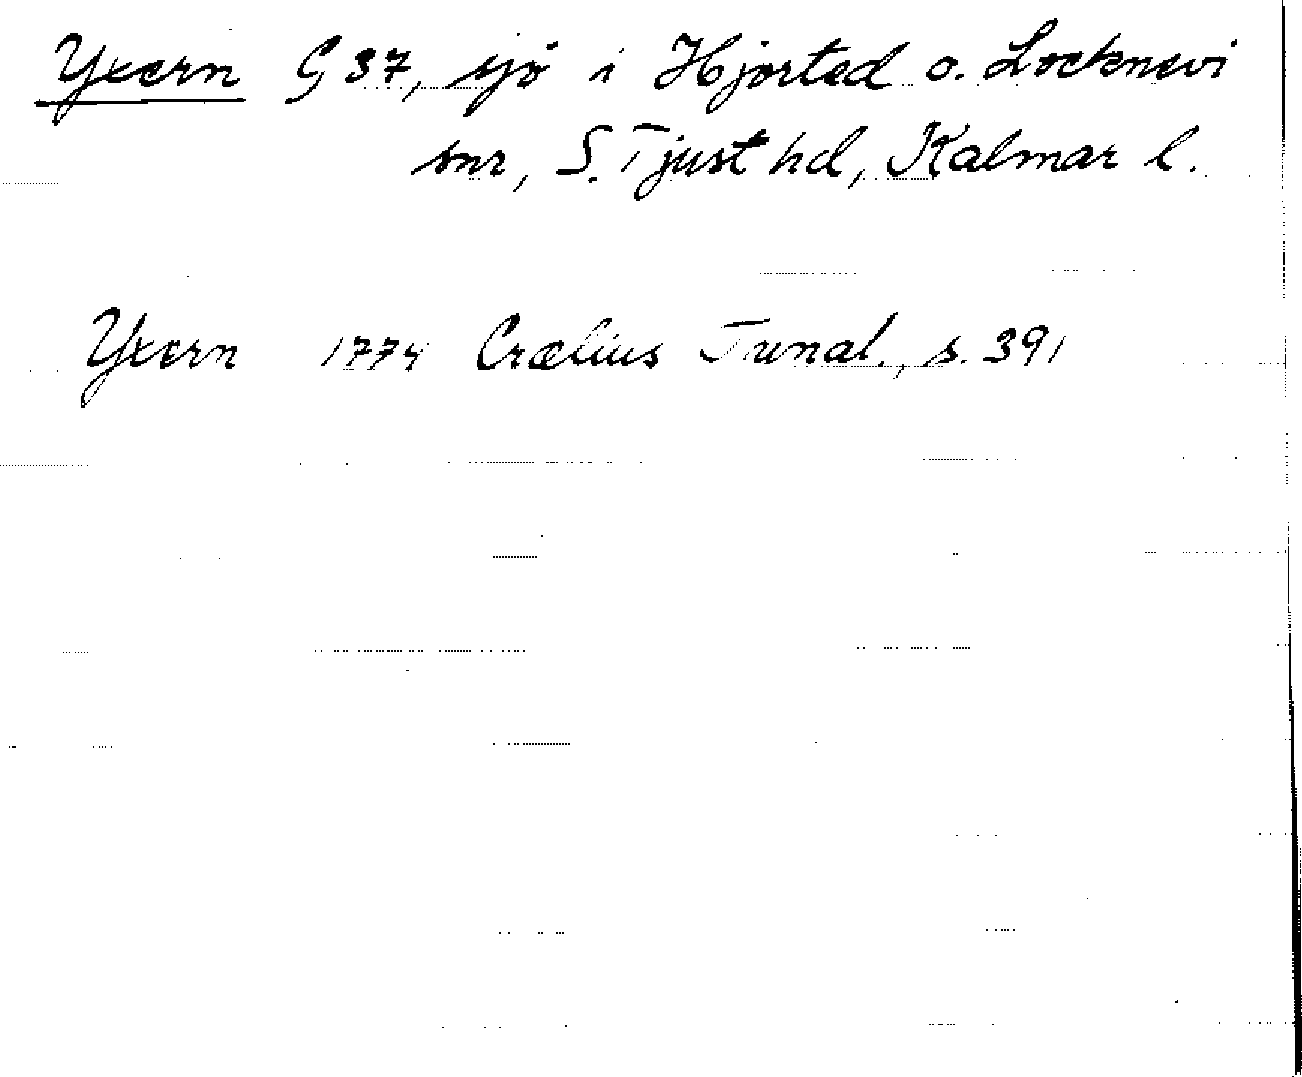 Yxern G 37, sjö i Hjorted o. Locknevi
snr, S. Tjust hd, Kalmar l.
Yxern 1774 Crælius Tunal., s. 391